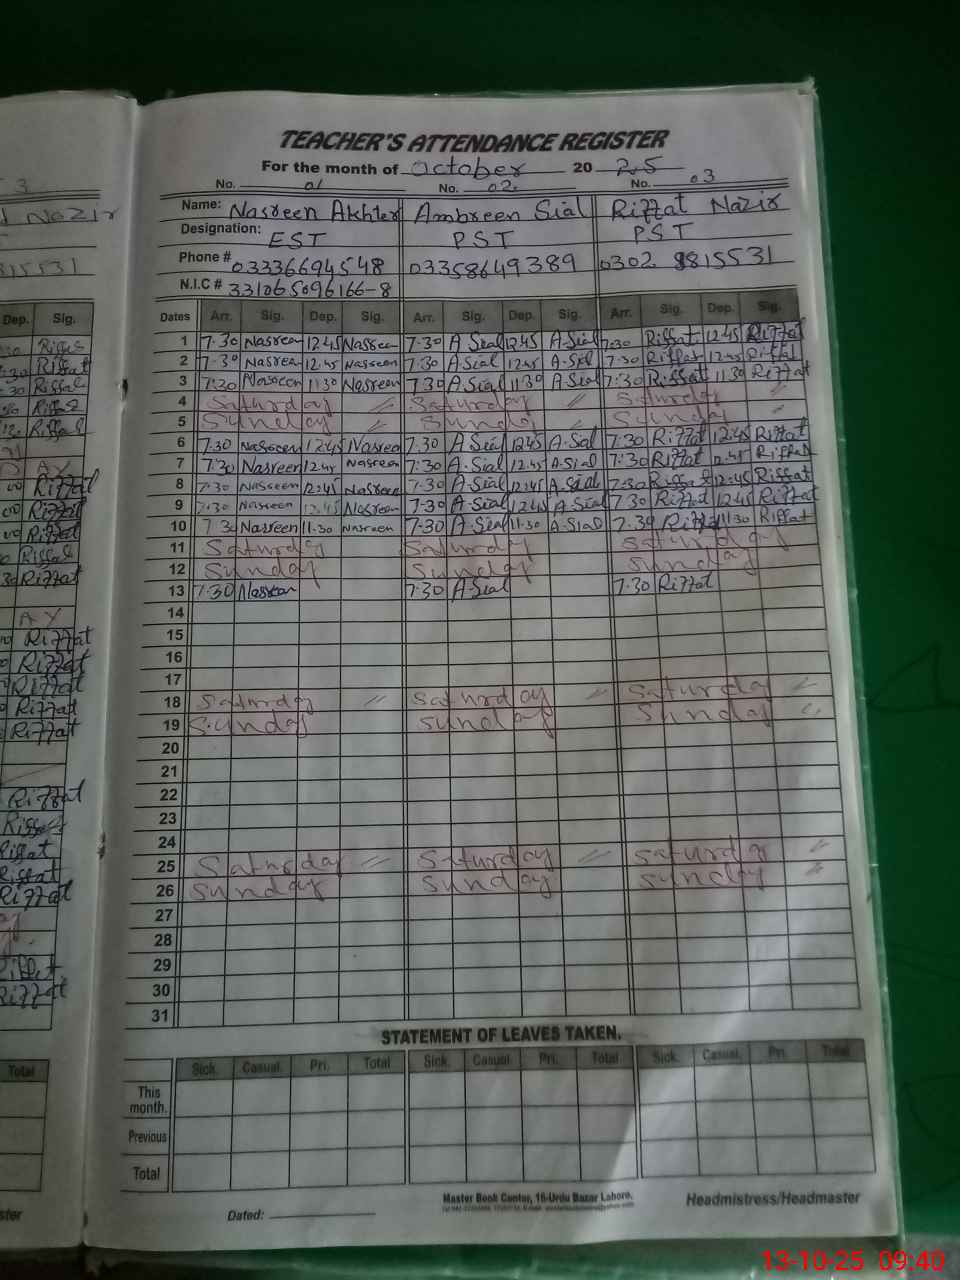 TEACHER'S ATTENDANCE REGISTER
For the month of October 2025
No. 01 No. 02 No. 03
Name: Nasreen Akhter Ambreen Sial Riffat Nazir
Designation: EST PST PST
Phone # 03336694548 03358649389 0302 9815531
N.I.C # 331065096166-8
Dates Arr. Sig. Dep. Sig. Arr. Sig. Dep. Sig. Arr. Sig. Dep. Sig.
1 7.30 Nasreen 12.45 Nasreen 7.30 A Sial 12.45 A-Sial 7:30 Riffat 12.45 Riffat
2 7.30 Nasreen 12.45 Nasreen 7.30 A Sial 12.45 A-Sial 7.30 Riffat 12.45 Riffat
3 7.30 Nasreen 11.30 Nasreen 7.30 A.Sial 11.30 A Sial 7:30 Riffat 11.30 Riffat
4 Saturday Saturday Saturday
5 Sunday Sunday Sunday
6 7.30 Nasreen 12.45 Nasreen 7.30 A Sial 12.45 A.Sial 7.30 Riffat 12.45 Riffat
7 7.30 Nasreen 12.45 Nasreen 7.30 A.Sial 12.45 A.Sial 7.30 Riffat 12.45 Riffat
8 7.30 Nasreen 12.45 Nasreen 7.30 A.Sial 12.45 A.Sial 7.30 Riffat 12.45 Riffat
9 7.30 Nasreen 12.45 Nasreen 7.30 A.Sial 12.45 A.Sial 7.30 Riffat 12.45 Riffat
10 7.30 Nasreen 11.30 Nasreen 7.30 A.Sial 11.30 A.Sial 7.30 Riffat 11.30 Riffat
11 Saturday Saturday Saturday
12 Sunday Sunday Sunday
13 7.30 Nasreen 7.30 A.Sial 7.30 Riffat
14
15
16
17
18 Saturday Saturday Saturday
19 Sunday Sunday Sunday
20
21
22
23
24
25 Saturday Saturday Saturday
26 Sunday Sunday Sunday
27
28
29
30
31
STATEMENT OF LEAVES TAKEN.
Sick. Casual. Pri. Total Sick. Casual. Pri. Total Sick. Casual. Pri. Total
This month.
Previous
Total
Master Book Center, 16-Urdu Bazar Lahore.
Dated: Headmistress/Headmaster
13-10-25 09:40